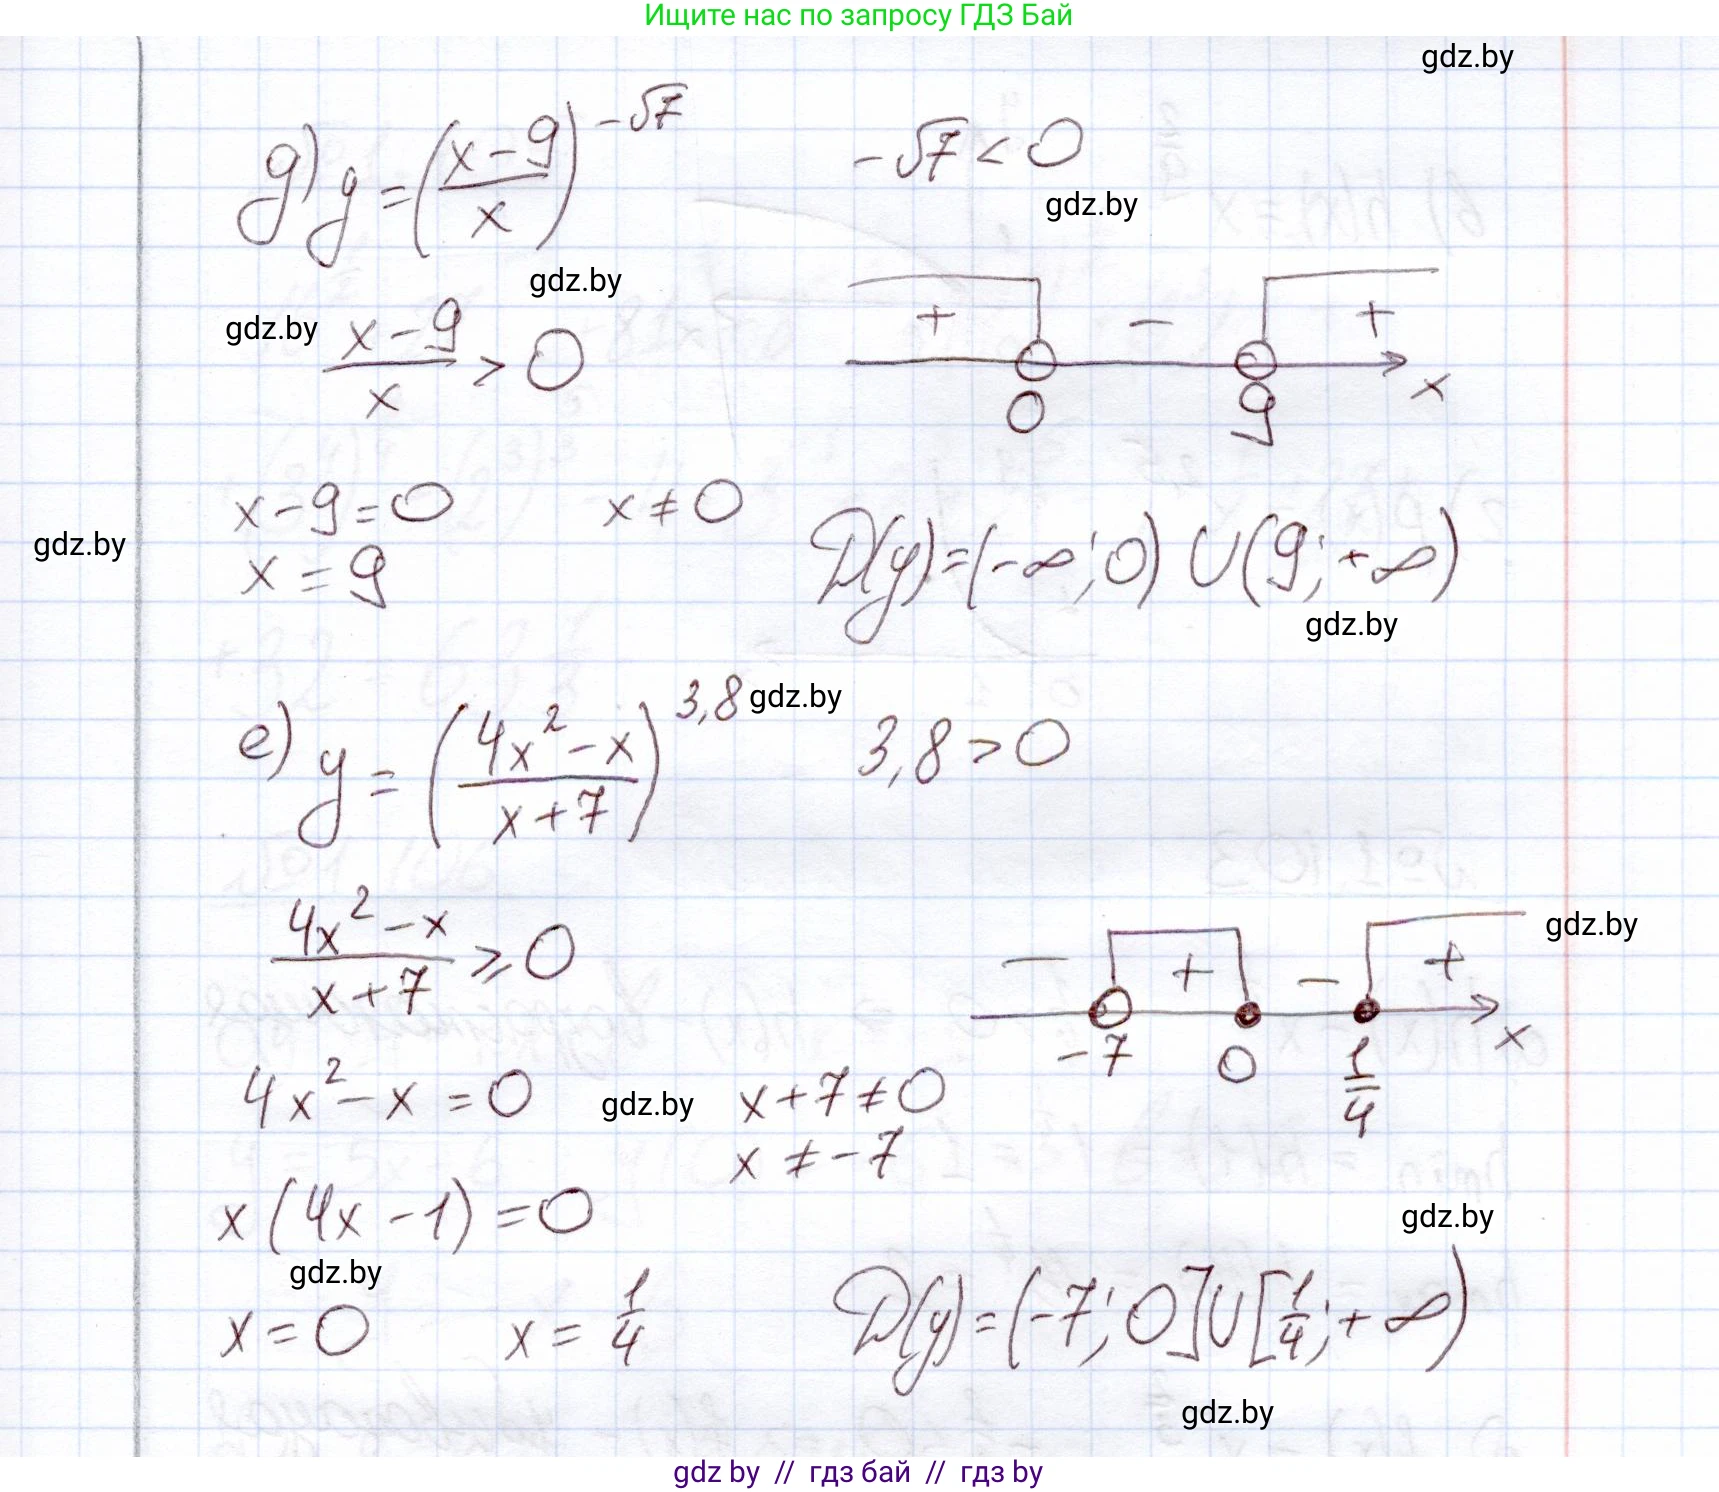 Ищите нас по запросу ГДЗ Бай
gdz.by
д) y = ((x-9)/x)^(-√7)    -√7 < 0
gdz.by
gdz.by
gdz.by
(x-9)/x > 0
+ - +
0 9 x
x-9=0    x≠0
gdz.by
x=9
D(y)=(-∞;0)∪(9;+∞)
gdz.by
е) y = ((4x²-x)/(x+7))^(3,8)    3,8 > 0
gdz.by
(4x²-x)/(x+7) ⩾ 0
gdz.by
- + - +
-7 0 1/4 x
4x²-x=0    x+7≠0
gdz.by
x≠-7
x(4x-1)=0
gdz.by
gdz.by
x=0    x=1/4
D(y)=(-7;0]∪[1/4;+∞)
gdz.by
gdz by // гдз бай // гдз by